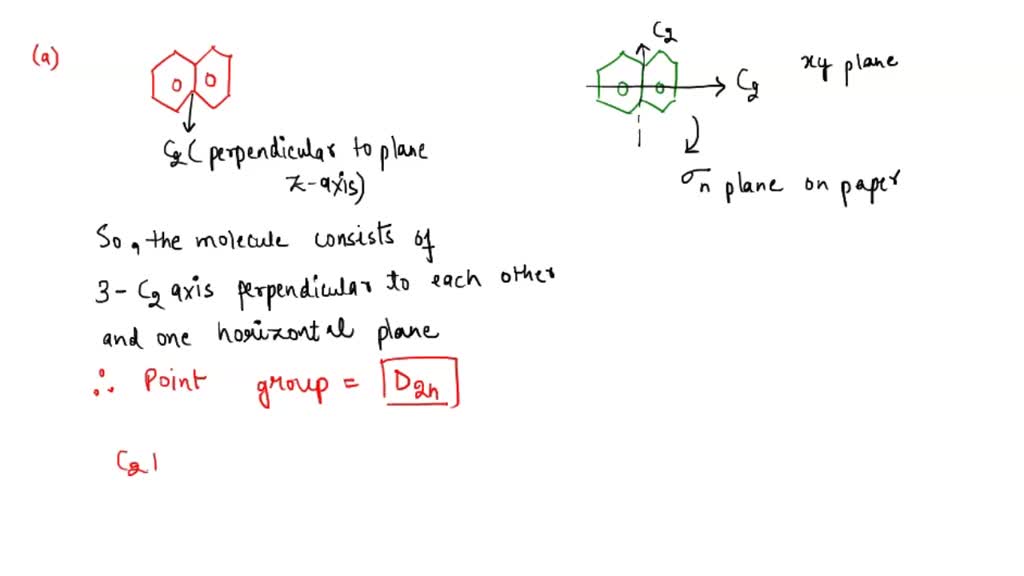 (a)
C2
C2
xy plane
C2 ( perpendicular to plane
z-axis)
σh plane on paper
So, the molecule consists of
3 - C2 axis perpendicular to each other
and one horizontal plane
∴ Point group = D2h
C2